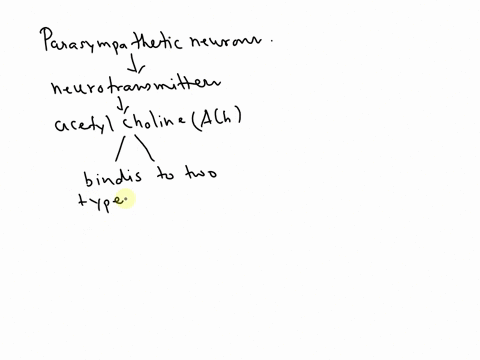 Parasympathetic neurons.
neurotransmitters
acetyl choline (ACh)
bindis to two
type